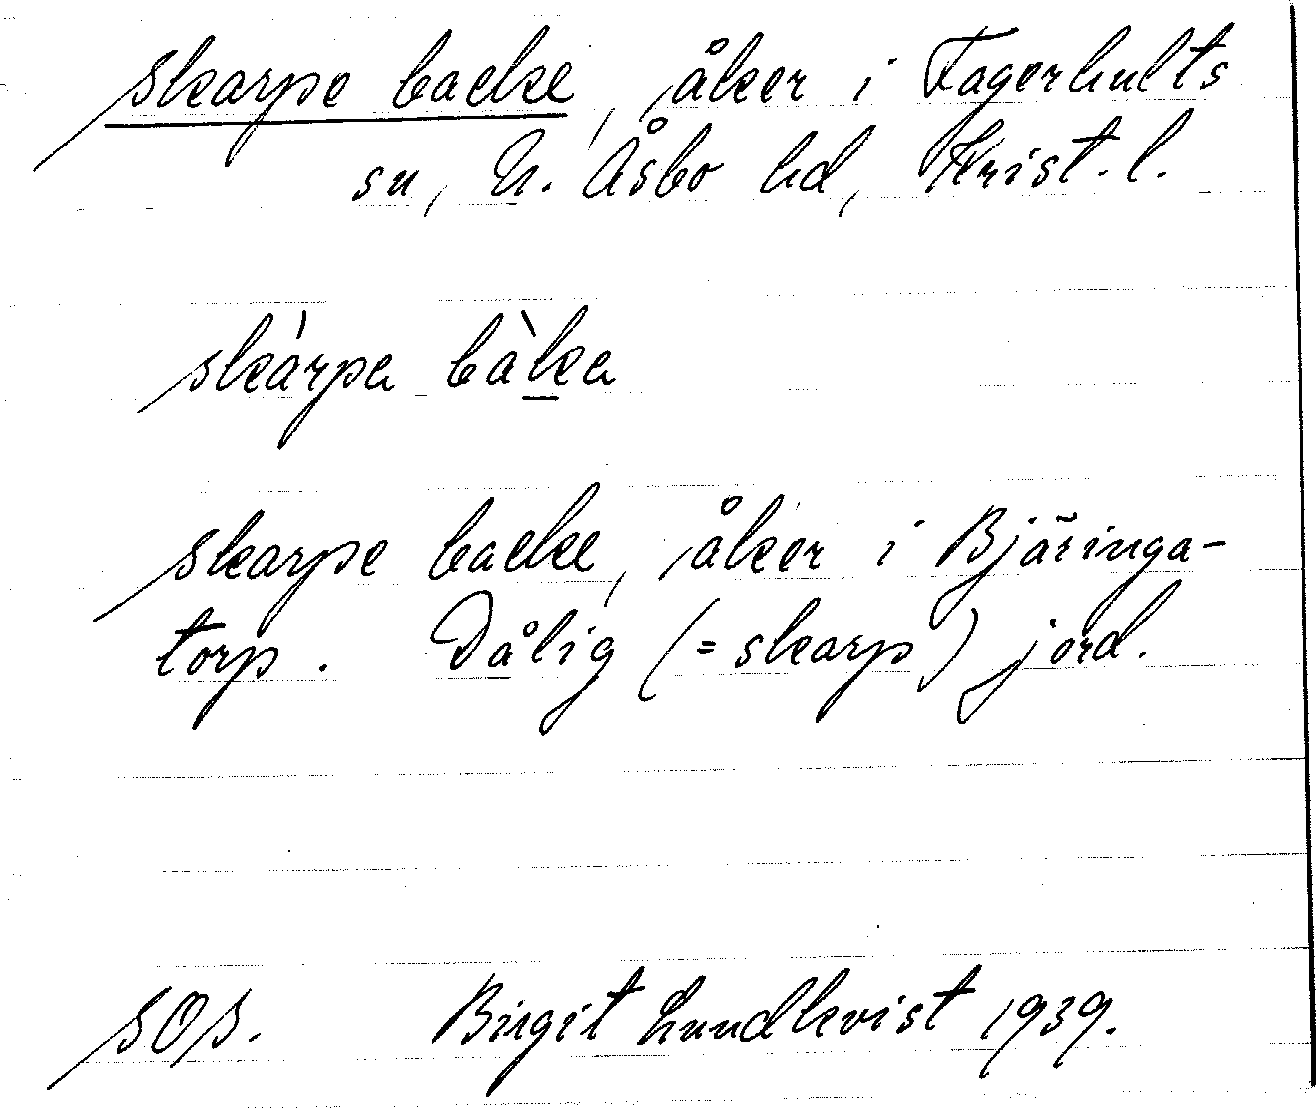 skarpe backe, åker i Fagerhults
sn, N. Åsbo hd, Krist. l.
skárpa bàka
skarpe backe, åker i Bjäringa-
torp. Dålig (= skarp) jord.
SOS. Birgit Lundkvist 1939.